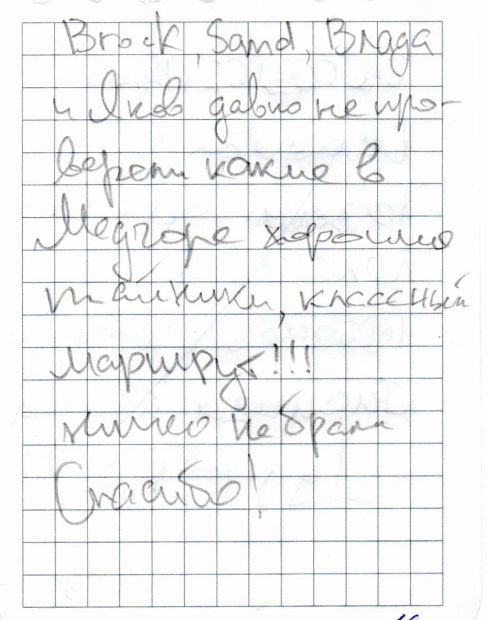 Brock, Sand, Влада
и Яков давно не про-
веряли какие в
Медгоре хорошие
тайники, классный
маршрут!!!
ничего не брали
Спасибо!